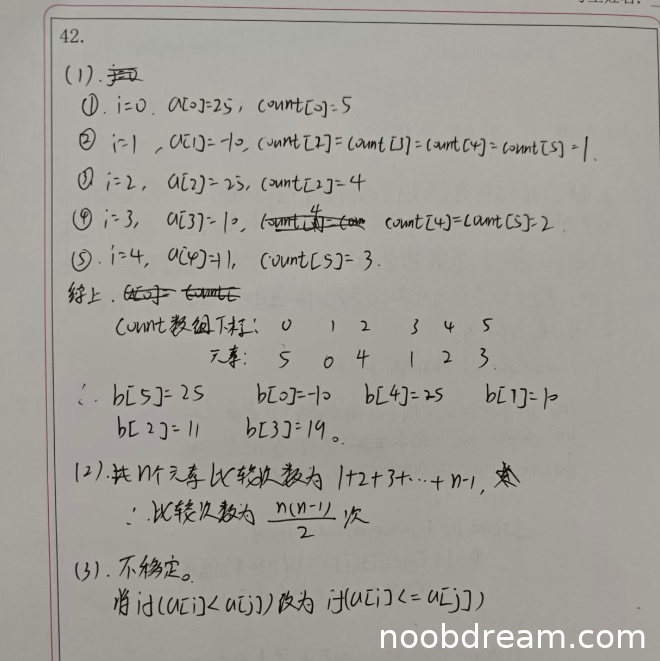 42.
(1).
①. i=0. a[0]=25, count[0]=5
② i=1, a[1]=-10, count[2]=count[3]=count[4]=count[5]=1.
③ i=2, a[2]=25, count[2]=4
④ i=3, a[3]=10, count[4]=count[5]=2.
⑤. i=4, a[4]=11, count[5]=3.
综上.
count数组下标: 0 1 2 3 4 5
元素: 5 0 4 1 2 3
∴ b[5]=25 b[0]=-10 b[4]=25 b[1]=10
b[2]=11 b[3]=19。
(2).共n个元素比较次数为 1+2+3+…+n-1,
∴比较次数为 n(n-1)/2 次
(3). 不稳定。
将if(a[i]<a[j])改为 if(a[i]<=a[j])
noobdream.com